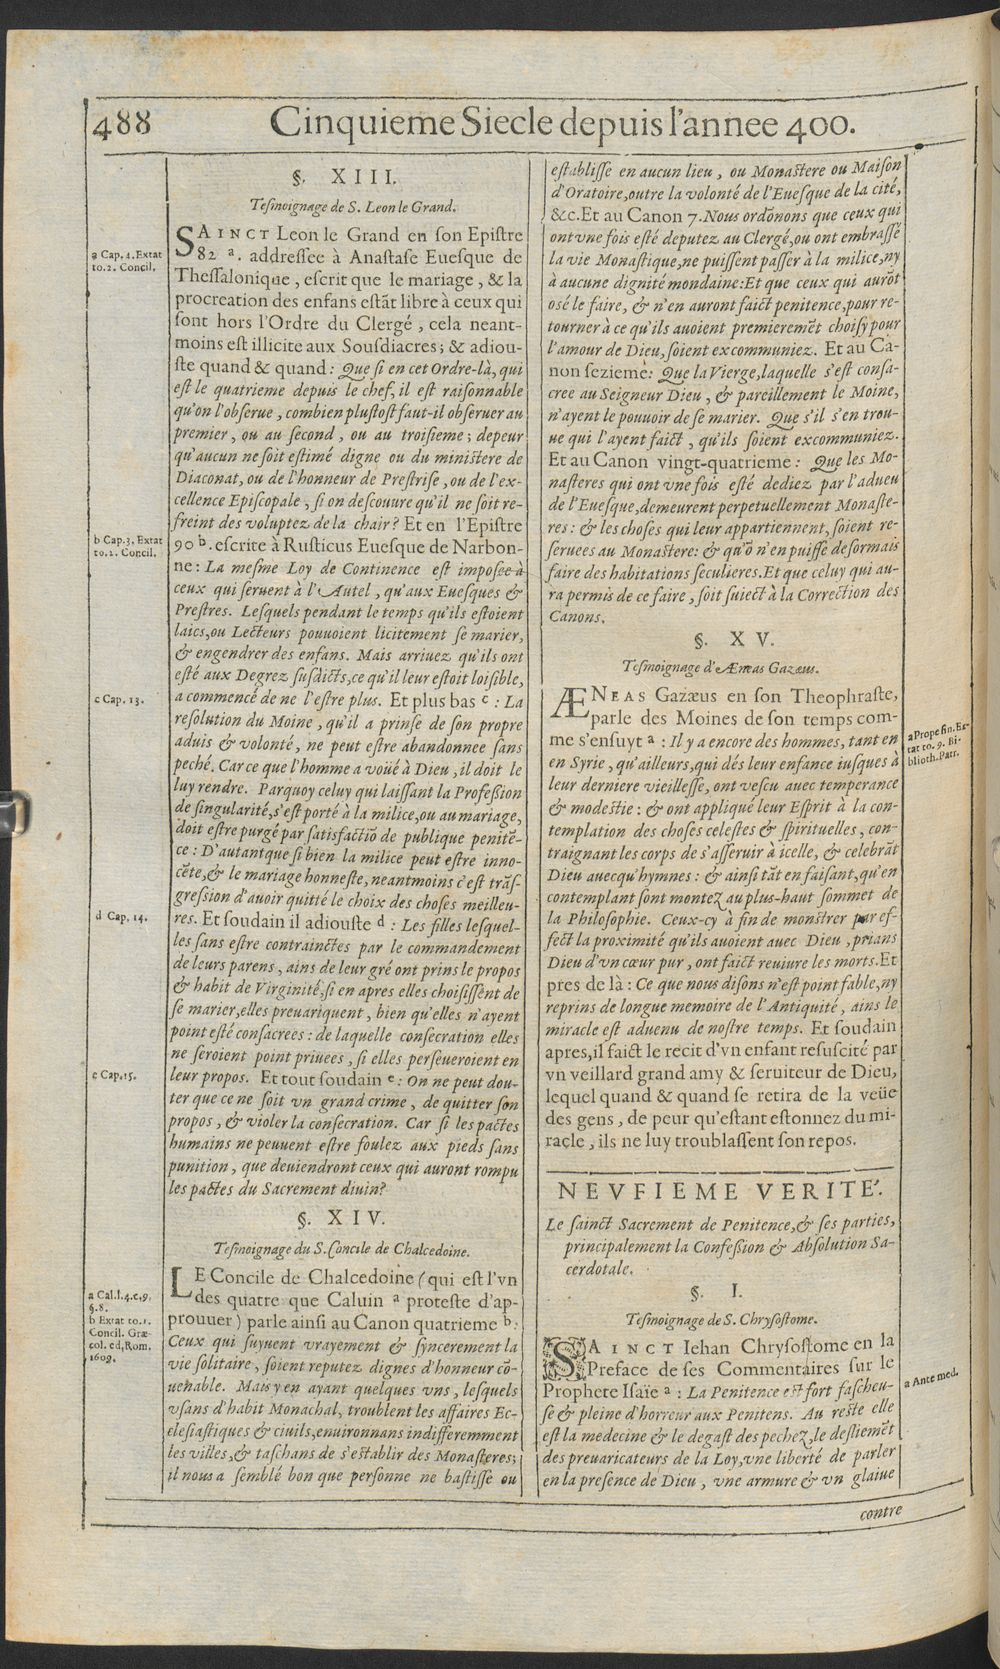 488 Cinquieme Siecle depuis l'annee 400.
§. XIII.
Tesmoignage de S. Leon le Grand.
SAINCT Leon le Grand en son Epistre
82 a. addressee à Anastase Euesque de
Thessalonique, escrit que le mariage, & la
procreation des enfans estãt libre à ceux qui
sont hors l'Ordre du Clergé, cela neant-
moins est illicite aux Sousdiacres; & adiou-
ste quand & quand: Que si en cet Ordre-là, qui
est le quatrieme depuis le chef, il est raisonnable
qu'on l'obserue, combien plustost faut-il obseruer au
premier, ou au second, ou au troisieme; depeur
qu'aucun ne soit estimé digne ou du ministere de
Diaconat, ou de l'honneur de Prestrise, ou de l'ex-
cellence Episcopale, si on descouure qu'il ne soit re-
freint des voluptez de la chair? Et en l'Epistre
90 b. escrite à Rusticus Euesque de Narbon-
ne: La mesme Loy de Continence est imposee à
ceux qui seruent à l'Autel, qu'aux Euesques &
Prestres. Lesquels pendant le temps qu'ils estoient
laics, ou Lecteurs pouuoient licitement se marier,
& engendrer des enfans. Mais arriuez qu'ils ont
esté aux Degrez susdicts, ce qu'il leur estoit loisible,
a commencé de ne l'estre plus. Et plus bas c: La
resolution du Moine, qu'il a prinse de son propre
aduis & volonté, ne peut estre abandonnee sans
peché. Car ce que l'homme a voüé à Dieu, il doit le
luy rendre. Parquoy celuy qui laissant la Profession
de singularité, s'est porté à la milice, ou au mariage,
doit estre purgé par satisfactiõ de publique penitẽ-
ce: D'autant que si bien la milice peut estre inno-
cẽte, & le mariage honneste, neantmoins c'est trãs-
gression d'auoir quitté le choix des choses meilleu-
res. Et soudain il adiouste d: Les filles lesquel-
les sans estre contrainctes par le commandement
de leurs parens, ains de leur gré ont prins le propos
& habit de Virginité, si en apres elles choisissent de
se marier, elles preuariquent, bien qu'elles n'ayent
point esté consacrees: de laquelle consecration elles
ne seroient point priuees, si elles perseueroient en
leur propos. Et tout soudain e: On ne peut dou-
ter que ce ne soit vn grand crime, de quitter son
propos, & violer la consecration. Car si les pactes
humains ne peuuent estre foulez aux pieds sans
punition, que deuiendront ceux qui auront rompu
les pactes du Sacrement diuin?
§. XIV.
Tesmoignage du S. Concile de Chalcedoine.
LE Concile de Chalcedoine (qui est l'vn
des quatre que Caluin a proteste d'ap-
prouuer) parle ainsi au Canon quatrieme b:
Ceux qui suyuent vrayement & syncerement la
vie solitaire, soient reputez dignes d'honneur cõ-
uenable. Mais y en ayant quelques vns, lesquels
vsans d'habit Monachal, troublent les affaires Ec-
clesiastiques & ciuils, enuironnans indifferemment
les villes, & taschans de s'establir des Monasteres;
il nous a semblé bon que personne ne bastisse ou
a Cap. 4. Extat
to. 2. Concil.
b Cap. 3. Extat
to. 2. Concil.
c Cap. 13.
d Cap. 14.
e Cap. 15.
a Cal. l. 4. c. 9.
§. 8.
b Extat to. 1.
Concil. Græ-
col. ed. Rom.
1609.
establisse en aucun lieu, ou Monastere ou Maison
d'Oratoire, outre la volonté de l'Euesque de la cité,
&c. Et au Canon 7. Nous ordõnons que ceux qui
ont vne fois esté deputez au Clergé, ou ont embrassé
la vie Monastique, ne puissent passer à la milice, ny
à aucune dignité mondaine: Et que ceux qui aurõt
osé le faire, & n'en auront faict penitence, pour re-
tourner à ce qu'ils auoient premieremẽt choisy pour
l'amour de Dieu, soient excommuniez. Et au Ca-
non sezieme: Que la Vierge, laquelle s'est consa-
cree au Seigneur Dieu, & pareillement le Moine,
n'ayent le pouuoir de se marier. Que s'il s'en trou-
ue qui l'ayent faict, qu'ils soient excommuniez.
Et au Canon vingt-quatrieme: Que les Mo-
nasteres qui ont vne fois esté dediez par l'adueu
de l'Euesque, demeurent perpetuellement Monaste-
res: & les choses qui leur appartiennent, soient re-
seruees au Monastere: & qu'õ n'en puisse desormais
faire des habitations seculieres. Et que celuy qui au-
ra permis de ce faire, soit suiect à la Correction des
Canons.
§. XV.
Tesmoignage d'Æneas Gazæus.
ÆNEAS Gazæus en son Theophraste,
parle des Moines de son temps com-
me s'ensuyt a: Il y a encore des hommes, tant en
en Syrie, qu'ailleurs, qui dés leur enfance iusques à
leur derniere vieillesse, ont vescu auec temperance
& modestie: & ont appliqué leur Esprit à la con-
templation des choses celestes & spirituelles, con-
traignant les corps de s'asseruir à icelle, & celebrãt
Dieu auecqu'hymnes: & ainsi tãt en faisant, qu'en
contemplant sont montez au plus-haut sommet de
la Philosophie. Ceux-cy à fin de monstrer par ef-
fect la proximité qu'ils auoient auec Dieu, prians
Dieu d'vn cœur pur, ont faict reuiure les morts. Et
pres de là: Ce que nous disons n'est point fable, ny
reprins de longue memoire de l'Antiquité, ains le
miracle est aduenu de nostre temps. Et soudain
apres, il faict le recit d'vn enfant resuscité par
vn veillard grand amy & seruiteur de Dieu,
lequel quand & quand se retira de la veüe
des gens, de peur qu'estant estonnez du mi-
racle, ils ne luy troublassent son repos.
NEVFIEME VERITE'.
Le sainct Sacrement de Penitence, & ses parties,
principalement la Confession & Absolution Sa-
cerdotale.
§. I.
Tesmoignage de S. Chrysostome.
SAINCT Iehan Chrysostome en la
Preface de ses Commentaires sur le
Prophete Isaïe a: La Penitence est fort fascheu-
se & pleine d'horreur aux Penitens. Au reste elle
est la medecine & le degast des pechez, le destiemẽt
des preuaricateurs de la Loy, vne liberté de parler
en la presence de Dieu, vne armure & vn glaiue
contre
a Prope fin. Ex-
tat to. 9. Bi-
blioth. Patr.
a Ante med.